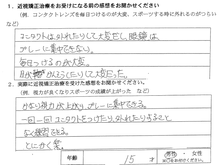 1．近視矯正治療をお受けになる前の感想をお聞かせください
（例、コンタクトレンズを毎日つけるのが大変。スポーツする時に外れるのがつらいなど）
コンタクトは外れたりして大変だし、眼鏡は
プレーに集中できない。
毎日つけるのが大変。
目が
かったりして大変だった。
2．実際に近視矯正治療をお受けになった感想をお聞かせください
（例、視力が良くなりスポーツの成績が上がった など）
かなり視力が上がり、プレーに集中できる。
一回一回コンタクトをつけたり、外れたりすること
なく練習できる。
とにかく楽。
年齢 15才
男性・女性